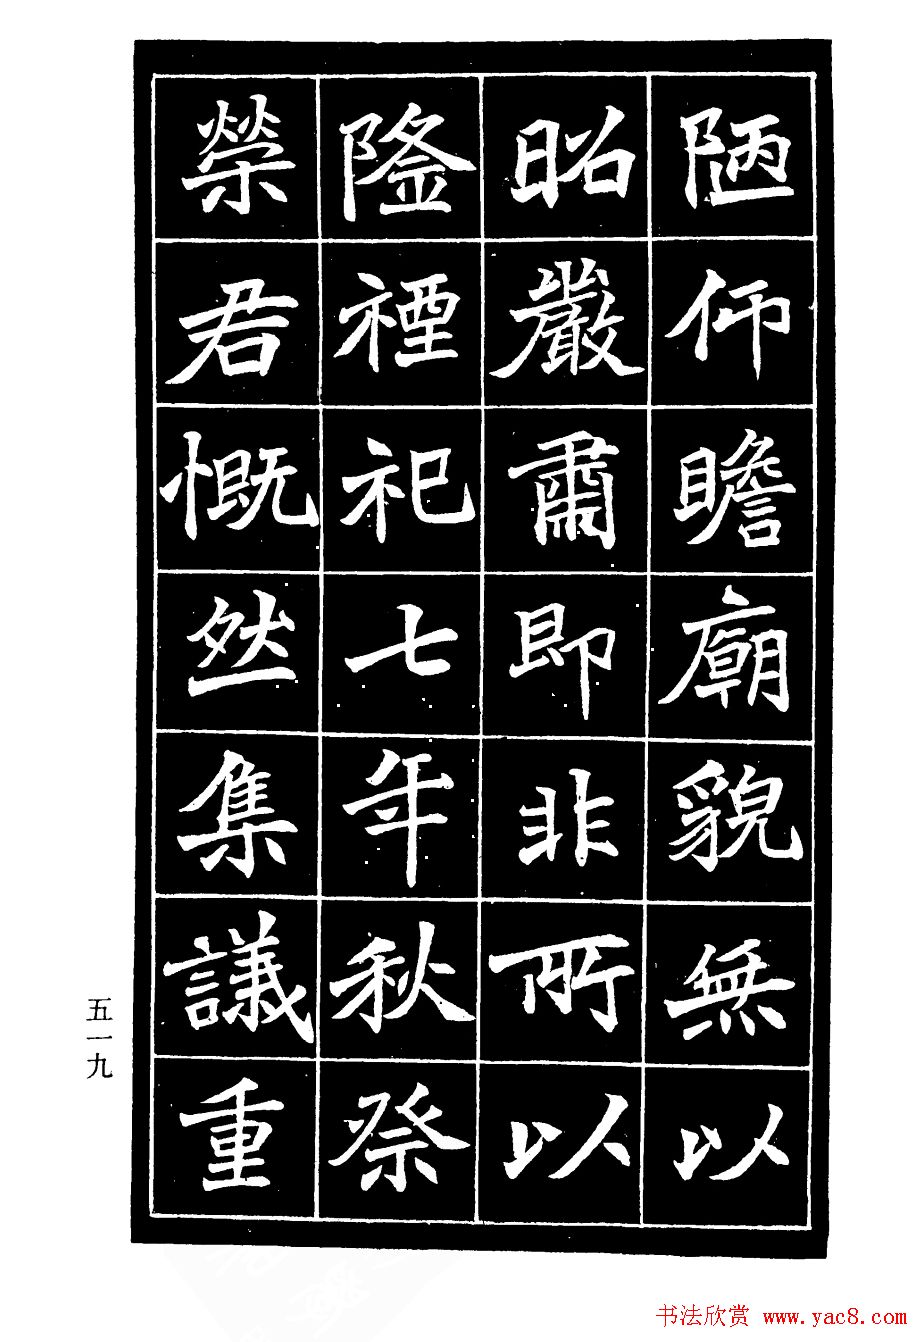 陋仰瞻廟貌無以
昭嚴肅即非所以
隆禋祀七年秋祭
榮君慨然集議重
五一九
书法欣赏 www.yac8.com